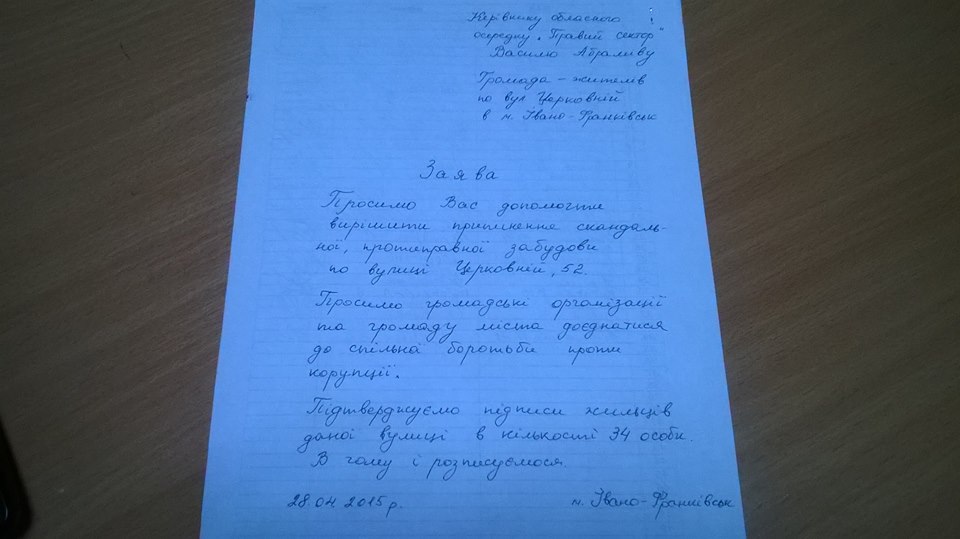 Керівнику обласного
осередку "Правий сектор"
Василю Абрамиву
Громада - жителів
по вул Церковній
в м. Івано-Франківськ
Заява
Просимо Вас допомогти
вирішити припинення скандаль-
ної, протиправної забудови
по вулиці Церковній, 52.
Просимо громадські організації
та громаду міста доєднатися
до спільної боротьби проти
корупції.
Підтверджуємо підписи жильців
даної вулиці в кількості 34 особи.
В чому і розписуємося.
28.04.2015р.
м. Івано-Франківськ